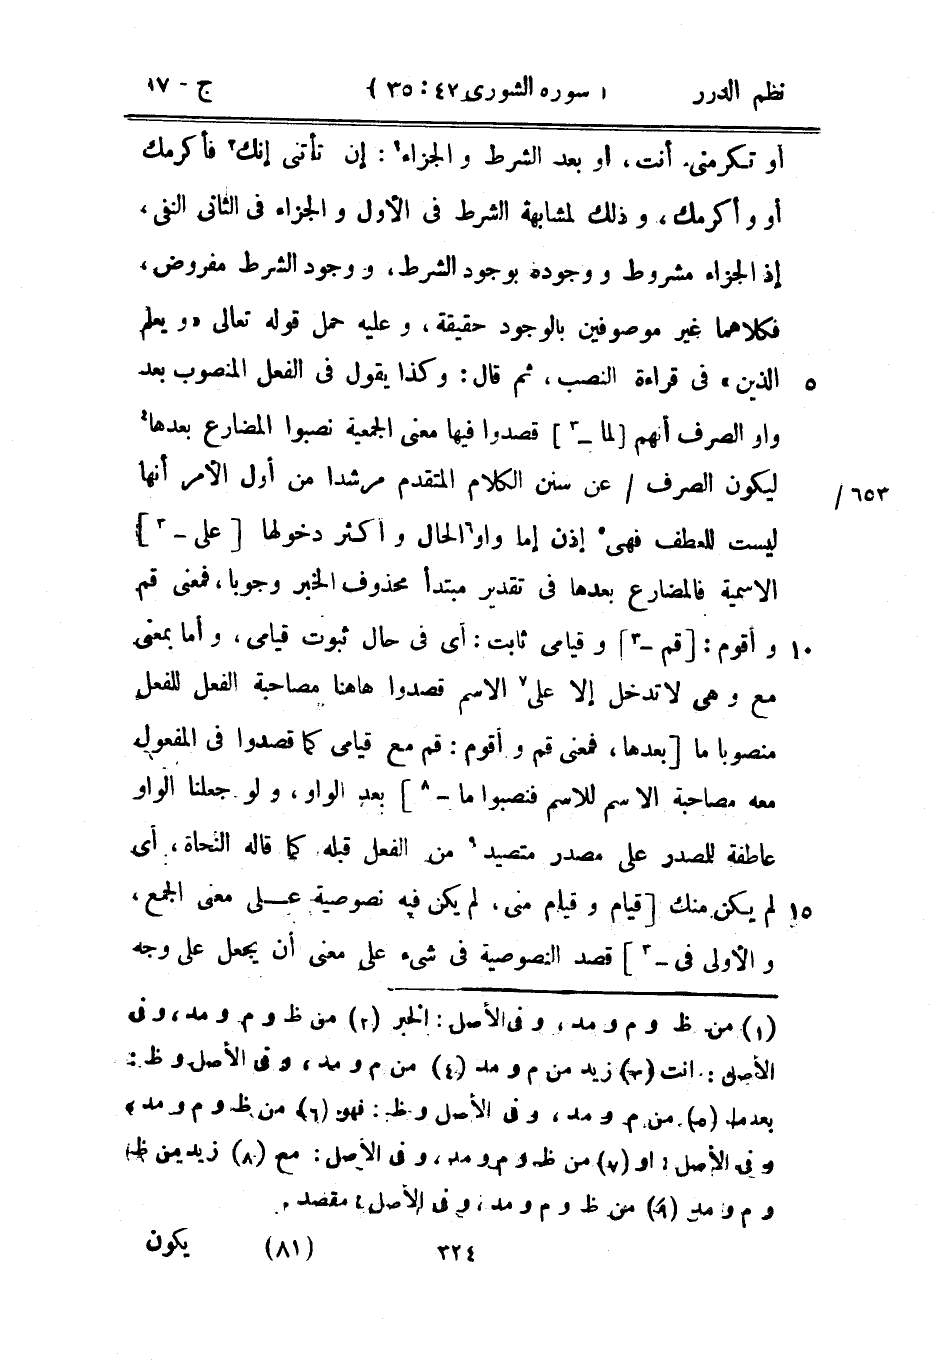 نظم الدرر ( سورة الشورى ٤٢ : ٣٥ ) ج - ١٧
أو تكرمنى أنت ، أو بعد الشرط و الجزاء١ : إن تأتنى إنك٢ فأكرمك
أو و أكرمك ، و ذلك لمشابهة الشرط فى الأول و الجزاء فى الثانى النفى ،
إذ الجزاء مشروط و وجوده بوجود الشرط ، و وجود الشرط مفروض ،
فكلاهما غير موصوفين بالوجود حقيقة ، و عليه حمل قوله تعالى « و يعلم
٥ الذين » فى قراءة النصب ، ثم قال : و كذا يقول فى الفعل المنصوب بعد
واو الصرف أنهم [ لما - ٣ ] قصدوا فيها معنى الجمعية نصبوا المضارع بعدها٤
٦٥٣ / ليكون الصرف / عن سنن الكلام المتقدم مرشدا من أول الأمر أنها
ليست للعطف فهى٥ إذن إما واو٦ الحال و أكثر دخولها [ على - ٣ ]
الاسمية فالمضارع بعدها فى تقدير مبتدأ محذوف الخبر وجوبا ، فمعنى قم
١٠ و أقوم : [ قم - ٣ ] و قيامى ثابت : أى فى حال ثبوت قيامى ، و أما بمعنى
مع و هى لا تدخل إلا على٧ الاسم قصدوا هاهنا مصاحبة الفعل للفعل
منصوبا ما [ بعدها ، فمعنى قم و أقوم : قم مع قيامى كما قصدوا فى المفعول
معه مصاحبة الاسم للاسم فنصبوا ما - ٨ ] بعد الواو ، و لو جعلنا الواو
عاطفة للصدر على مصدر متصيد٩ من الفعل قبله كما قاله النحاة ، أى
١٥ لم يكن منك [ قيام و قيام منى ، لم يكن فيه نصوصية على معنى الجمع ،
و الأولى فى - ٣ ] قصد النصوصية فى شىء على معنى أن يجعل على وجه
(١) من ظ و م و مد ، و فى الأصل : الخبر (٢) من ظ و م و مد ، و فى
الأصل : انت (٣) زيد من م و مد (٤) من م و مد ، و فى الأصل و ظ :
بعدما (٥) من م و مد ، و فى الأصل و ظ : فهو (٦) من ظ و م و مد ،
و فى الأصل : او (٧) من ظ و م و مد ، و فى الأصل : مع (٨) زيد من ظ
و م و مد (٩) من ظ و م و مد ، و فى الأصل : مقصد .
٣٢٤ (٨١) يكون